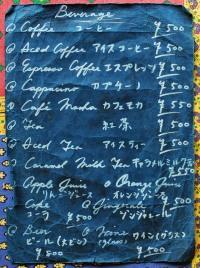 Beverage
@ Coffee コーヒー ¥500
@ Iced Coffee アイスコーヒー ¥500
@ Espresso Coffee エスプレッソ ¥500
@ Cappucino カプチーノ ¥550
@ Café Mocha カフェモカ ¥550
@ Tea 紅茶 ¥500
@ Iced Tea アイスティー ¥500
Caramel Milk Tea キャラメルミルクティー ¥550
Apple Juice @ Orange Juice
リンゴジュース オレンジジュース
Coke @ Gingerale ¥500
コーラ ¥500 ジンジャエール
@ Beer @ Wine ワイン(グラス)
ビール (glass) ¥500
¥500